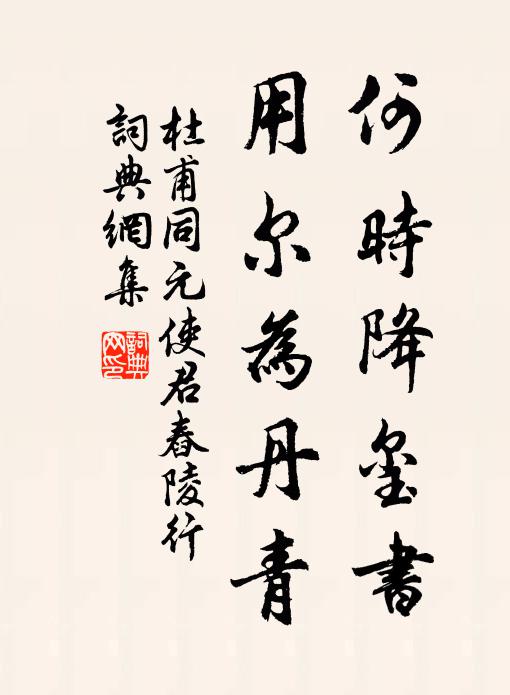 何時降玺書
用尔為丹青
杜甫同元使君舂陵行
詞典網集
詞典網印